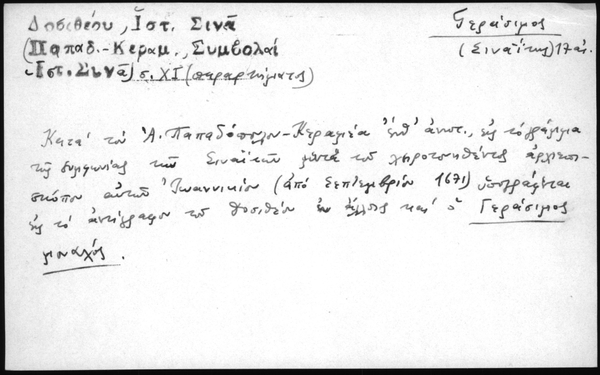 Δοσιθέου, Ἱστ. Σινᾶ
(Παπαδ.-Κεραμ., Συμβολαί
Ἱστ. Σινᾶ) σ. XI (παραρτήματος)
Γεράσιμος
(Σιναΐτης) 17 αἰ.
Κατά τόν Ἀ. Παπαδόπουλον-Κεραμέα ἔνθ' ἀνωτ., εἰς τό γράμμα
τῆς συμφωνίας τῶν Σιναϊτῶν μετά τοῦ χειροτονηθέντος ἀρχιεπι-
σκόπου αὐτῶν Ἰωαννικίου (ἀπό Σεπτεμβρίου 1671) ὑπογράφεται
εἰς τό ἀντίγραφον τοῦ Δοσιθέου ἐν ἄλλοις καί ὁ Γεράσιμος
μοναχός.